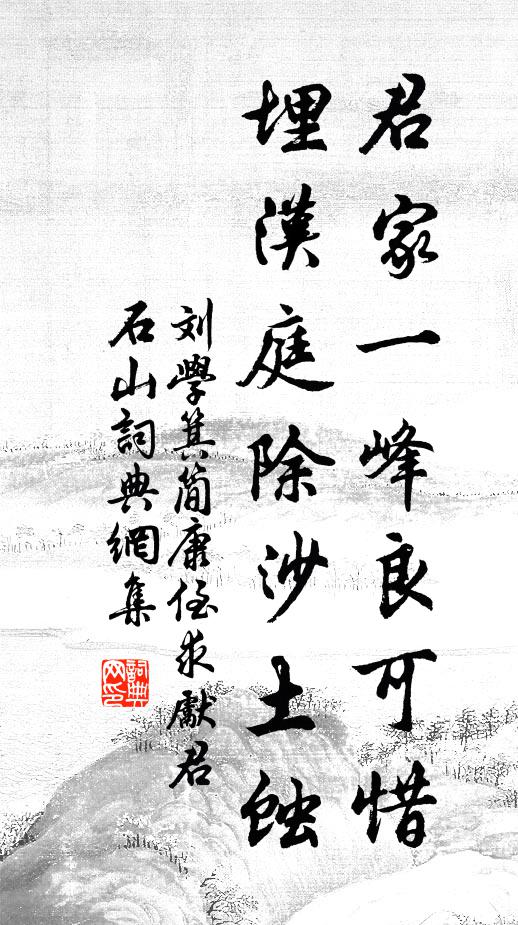 君家一峰良可惜
埋漠庭除沙土蝕
刘學箕簡康侄求獻君
石山詞典網集
詞典網印